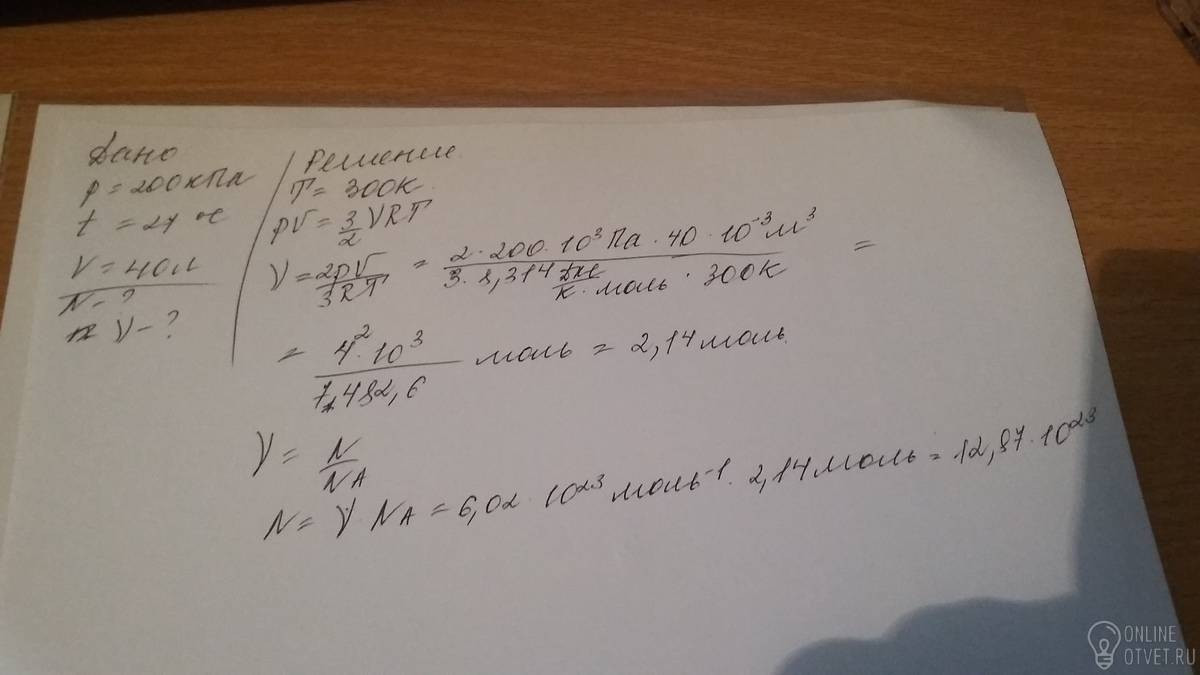 Дано
p = 200 кПа
t = 27 °C
V = 40 л
N - ?
ν - ?
Решение.
T = 300 К.
pV = 3/2 νRT
ν = 2pV/3RT = 2 · 200 · 10³ Па · 40 · 10⁻³ м³ / 3 · 8,314 Дж/К · моль · 300 К =
= 4² · 10³ / 7482,6 моль = 2,14 моль.
ν = N/NA
N = ν · NA = 6,02 · 10²³ моль⁻¹ · 2,14 моль = 12,87 · 10²³
ONLINE
OTVET.RU